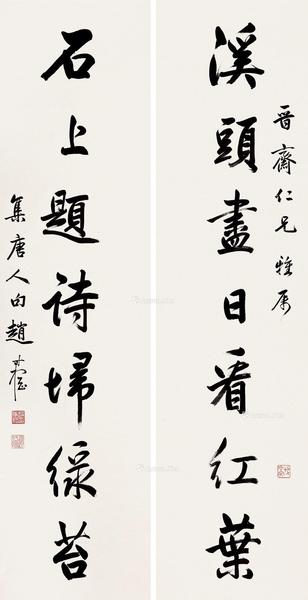 晋齋仁兄雅属
溪頭盡日看紅葉
石上題詩埽綠苔
集唐人句趙